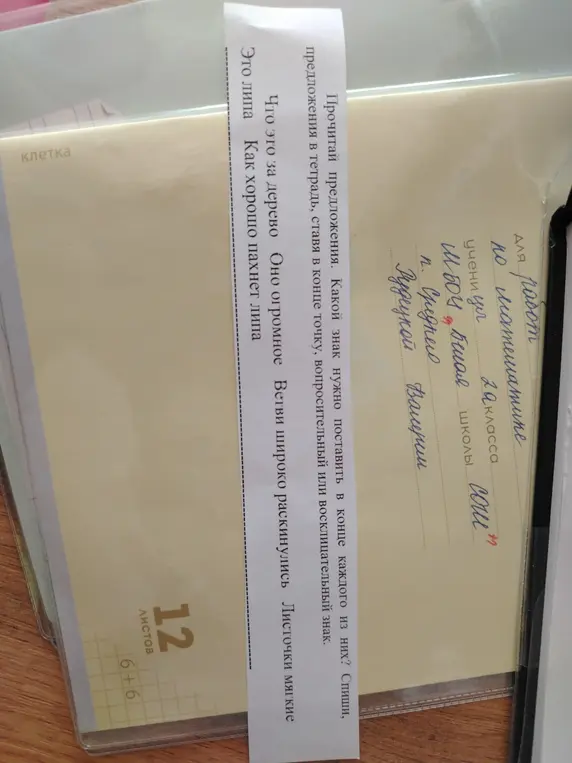 Прочитай предложения. Какой знак нужно поставить в конце каждого из них? Спиши,
предложения в тетрадь, ставя в конце точку, вопросительный или восклицательный знак.
Что это за дерево Оно огромное Ветви широко раскинулись Листочки мягкие
Это липа Как хорошо пахнет липа
для работ
по математике
ученицы 2а класса
МБОУ "Бшая школы СОШ"
п. Средний
Рудецкой Валерии
клетка
12
листов
6+6